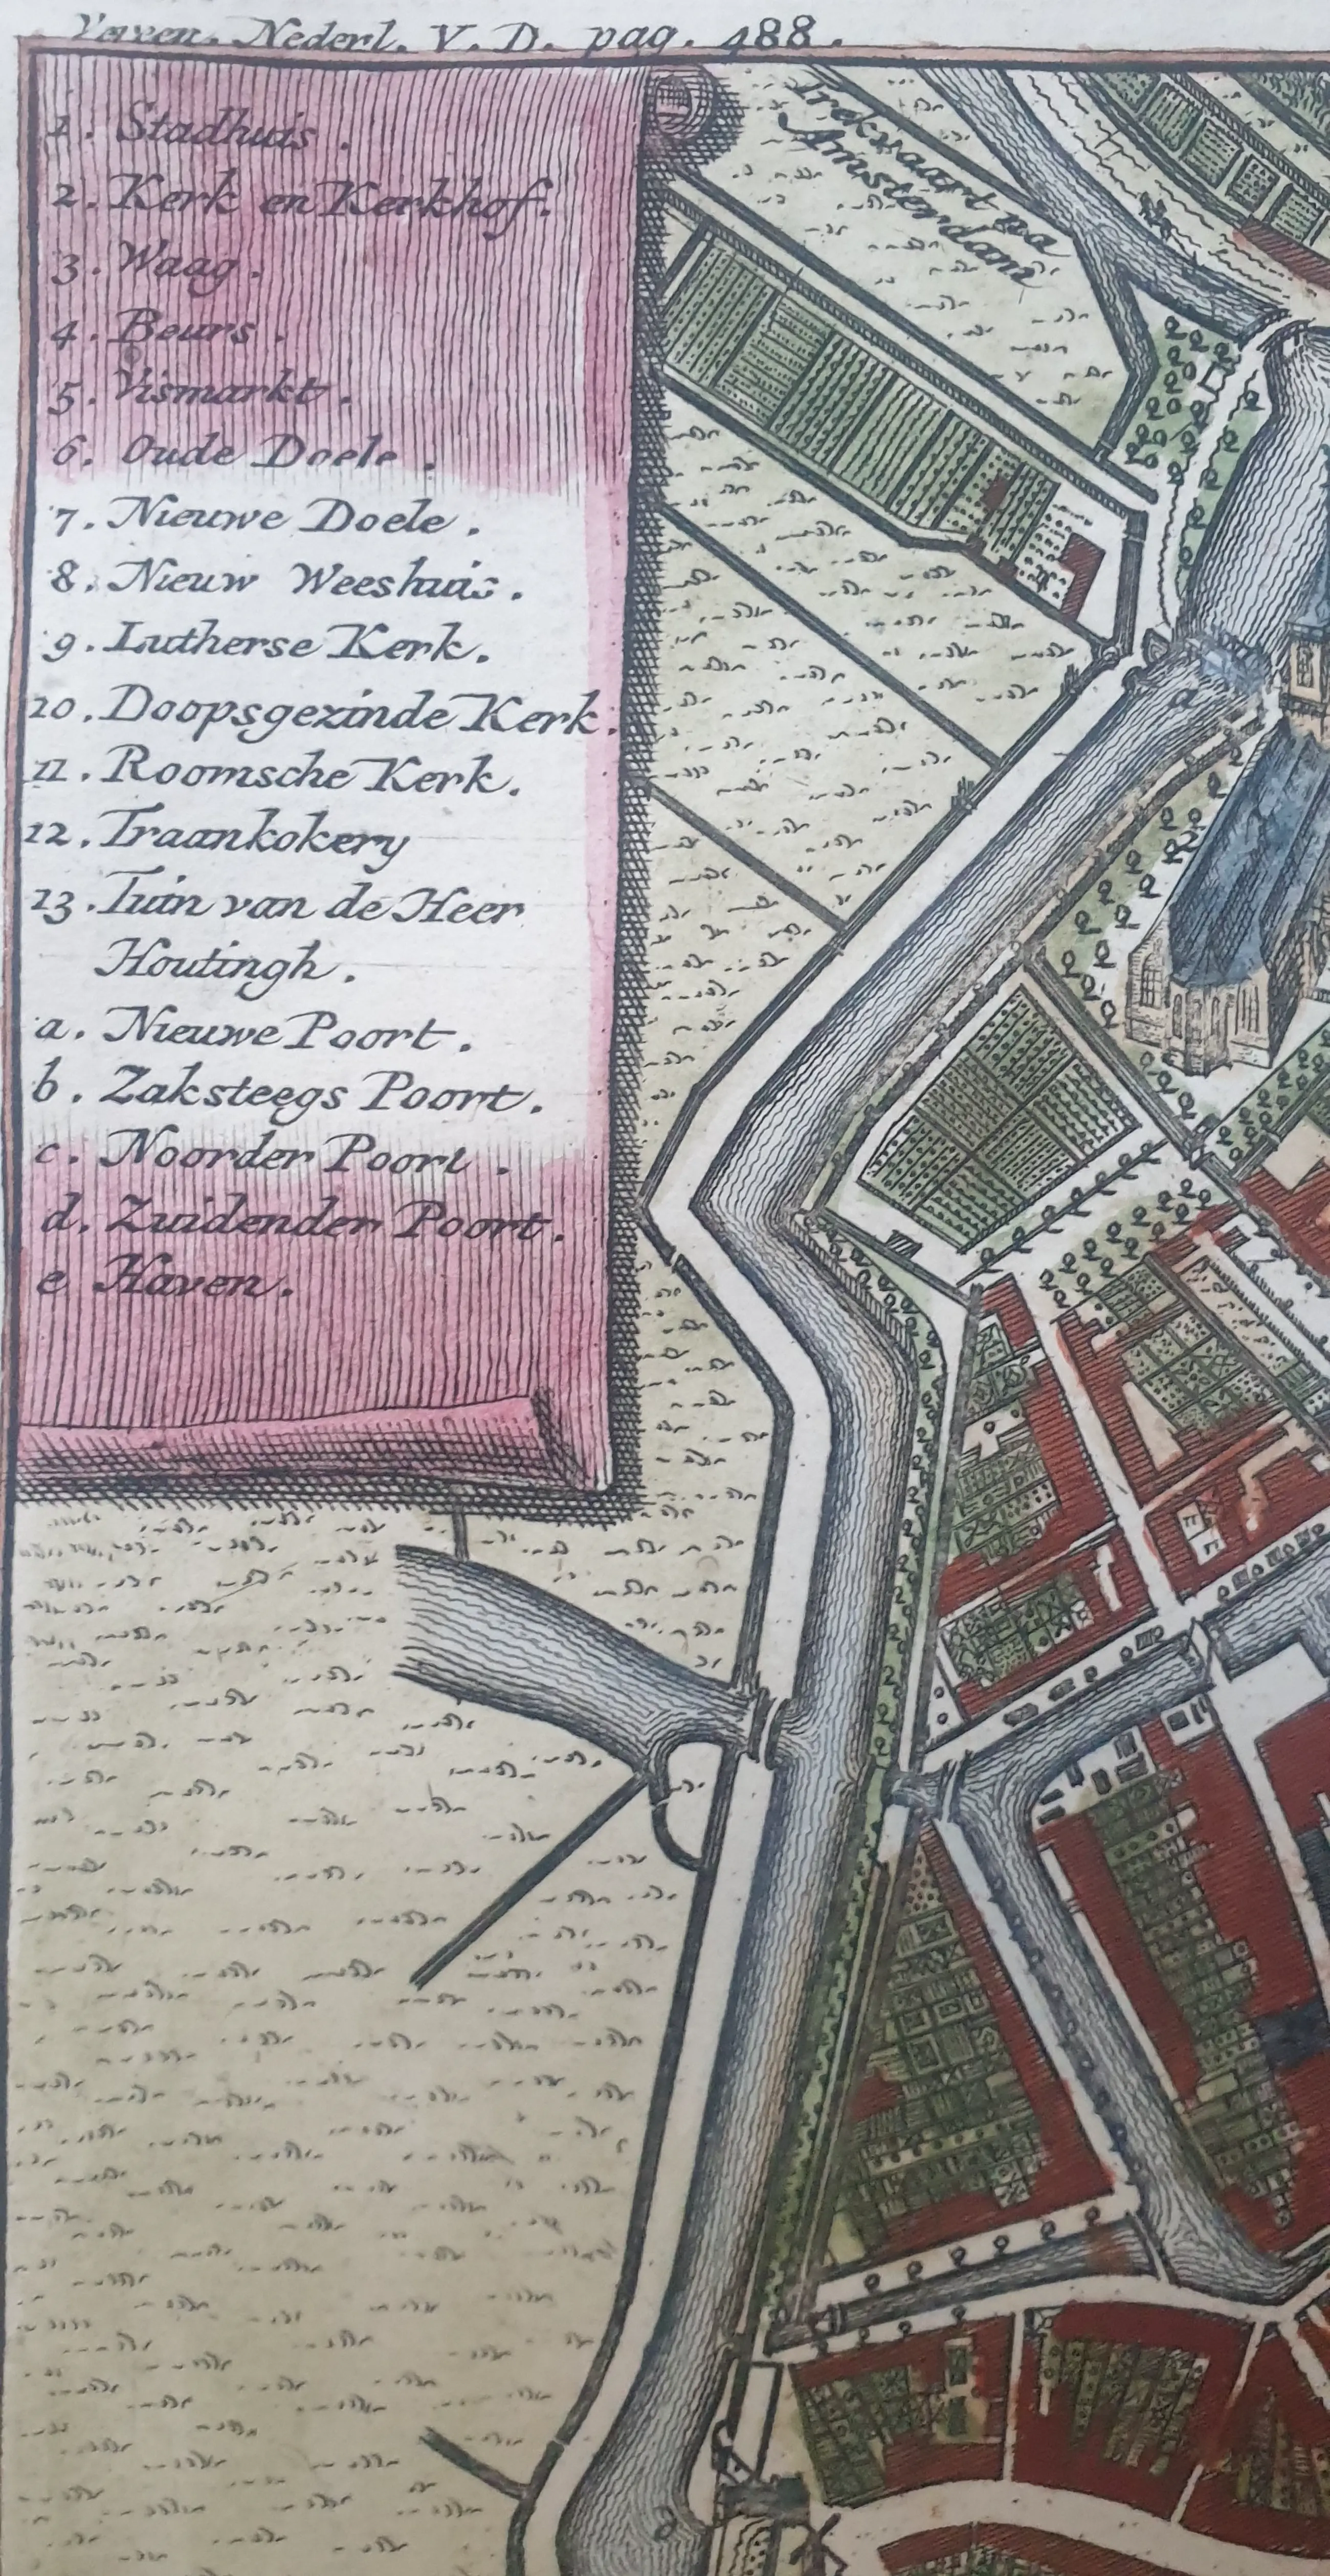 Verven. Nederl. V. D. pag. 488.
1. Stadhuis.
2. Kerk en Kerkhof.
3. Waag.
4. Beurs.
5. Vismarkt.
6. Oude Doele.
7. Nieuwe Doele.
8. Nieuw Weeshuis.
9. Lutherse Kerk.
10. Doopsgezinde Kerk.
11. Roomsche Kerk.
12. Traankokery
13. Tuin van de Heer
Houtingh.
a. Nieuwe Poort.
b. Zaksteegs Poort.
c. Noorder Poort.
d. Zuidender Poort.
e Haven.
Trekvaart na
Amsterdam
a